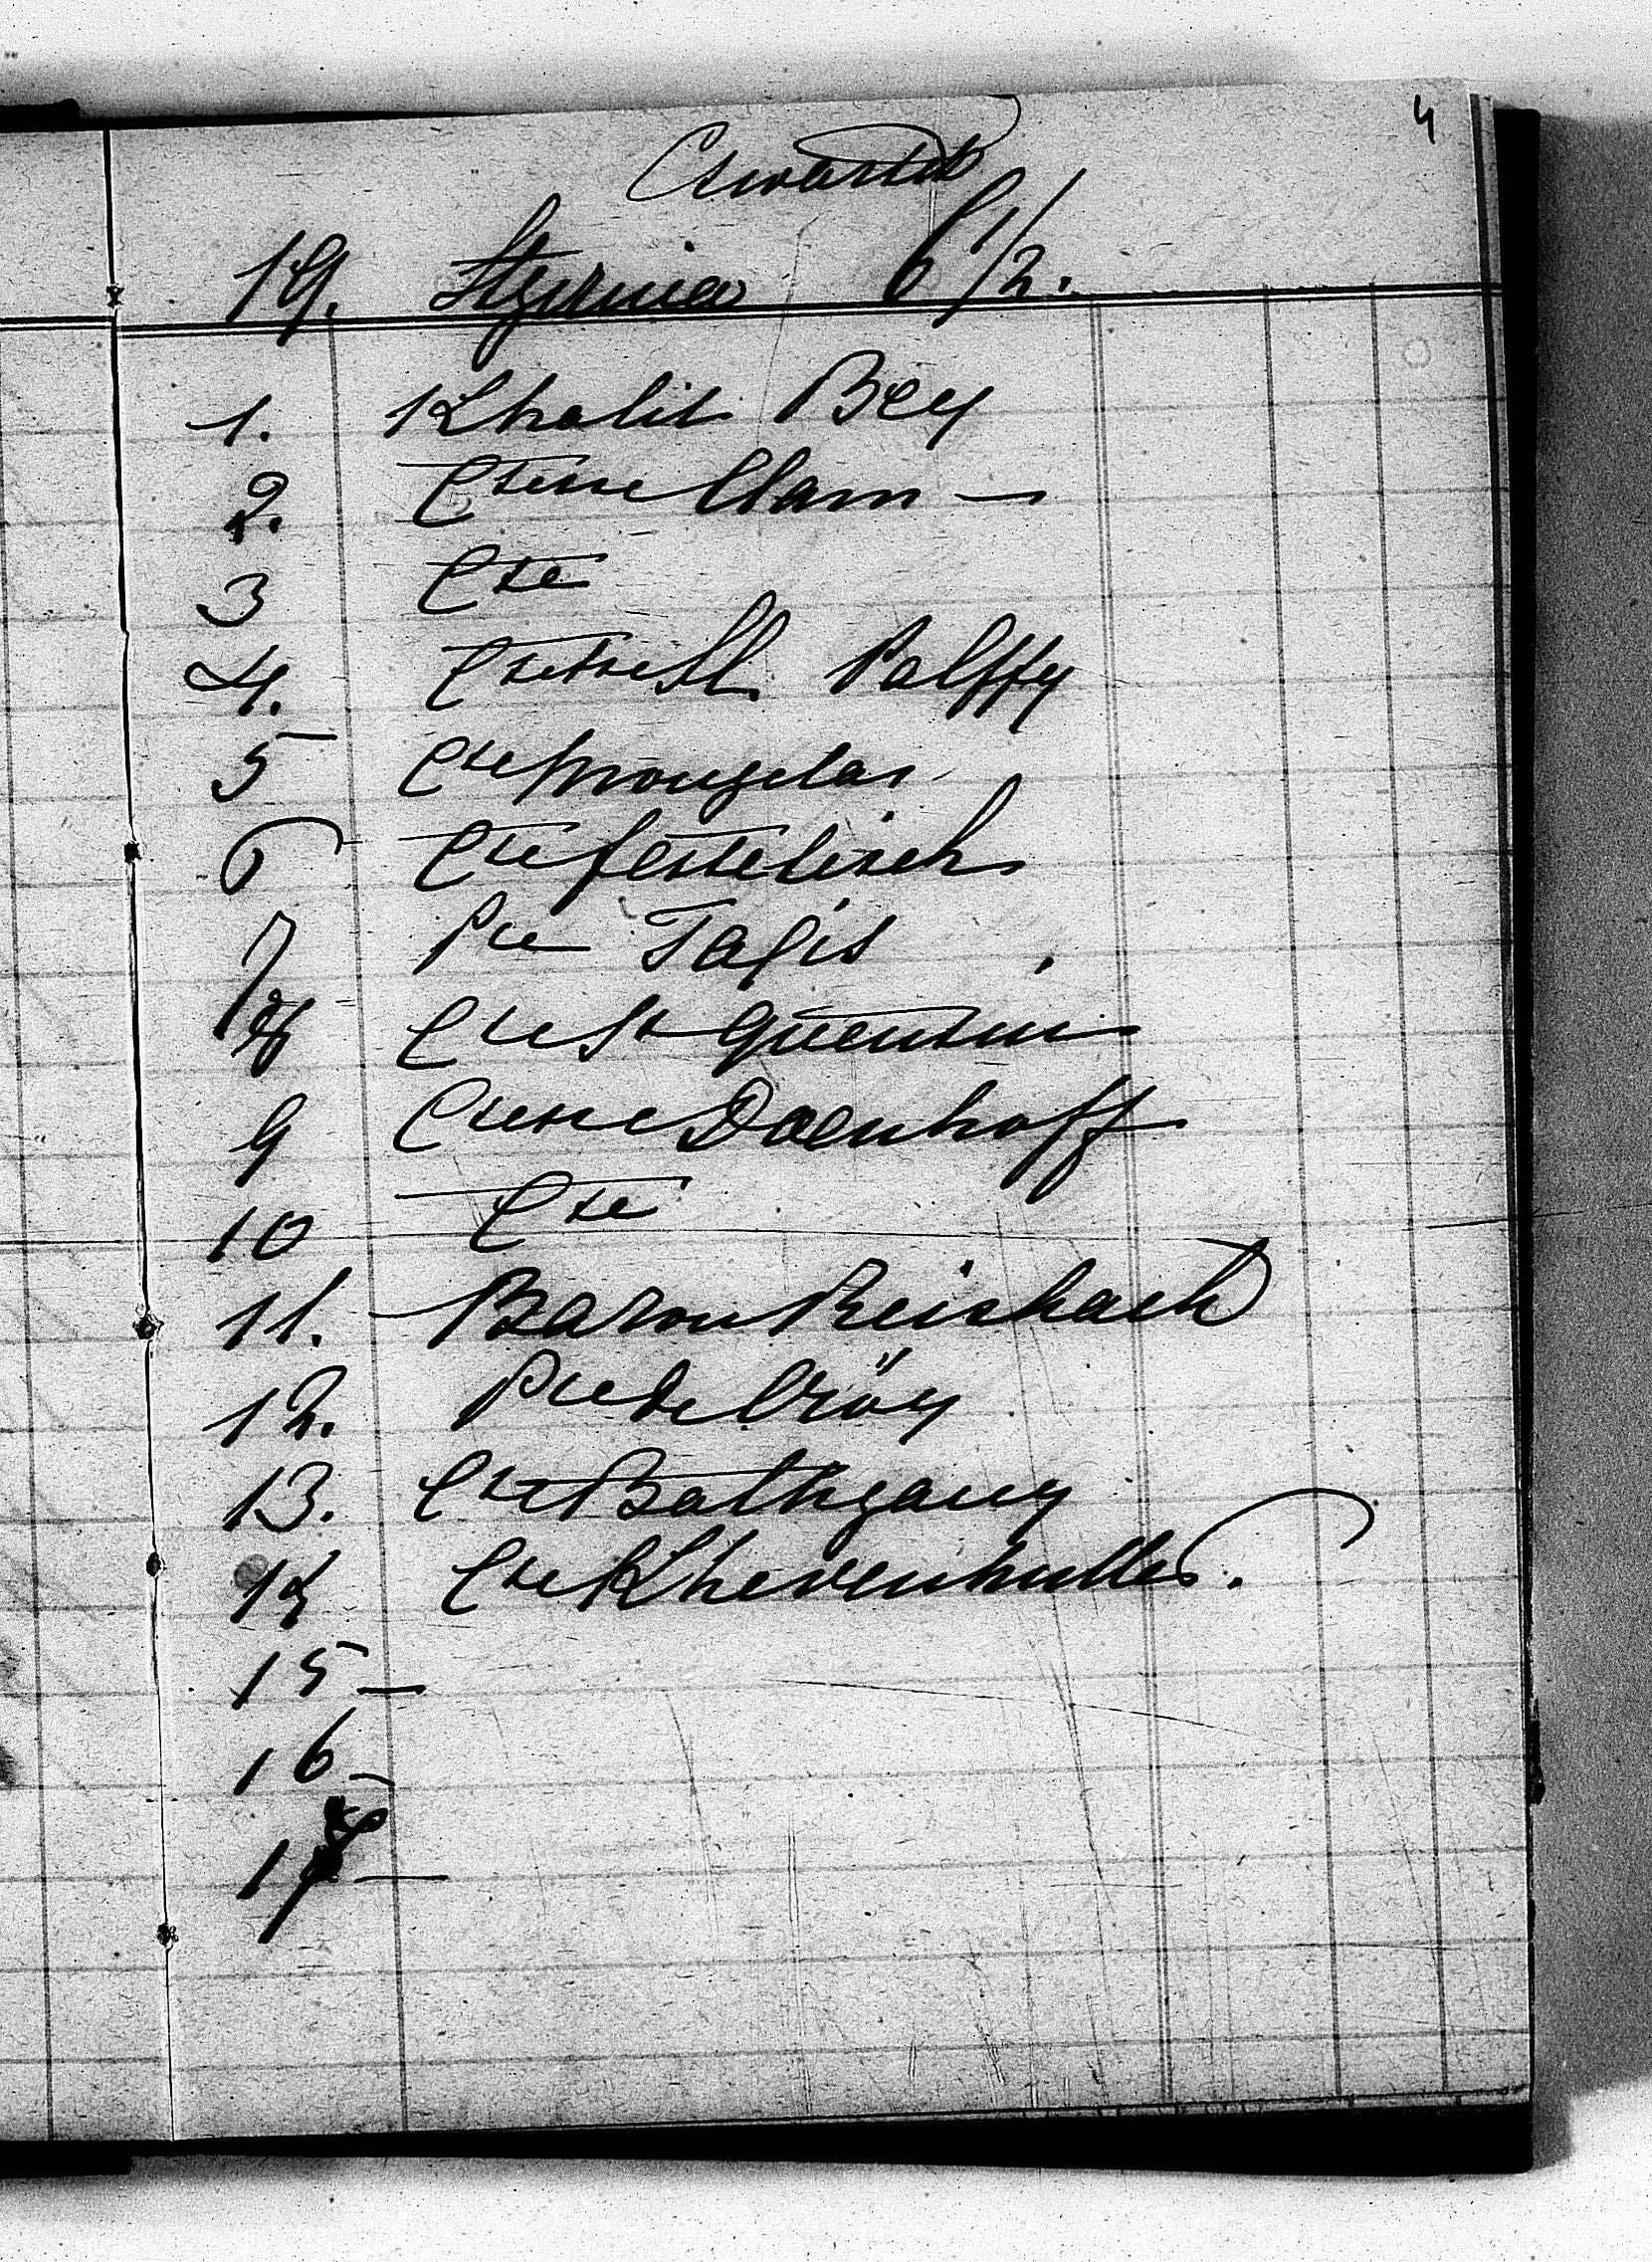 4
Czwartek
19. Stycznia 6 1/2.
1. Khalil Bey
2. Ctesse Clam —
3 Cte
4. Ctesse St. Palffy
5 Cte Mongelas
6 Cte Festetisch
7 Pce Taxis
8 Cte St Quentin
9 Ctesse Doenhoff
10 Cte
11. Baron Reischach
12. Pce de Cröy
13. Cte Bathyany
14 Cte Khevenhuller.
15 —
16 —
17 —